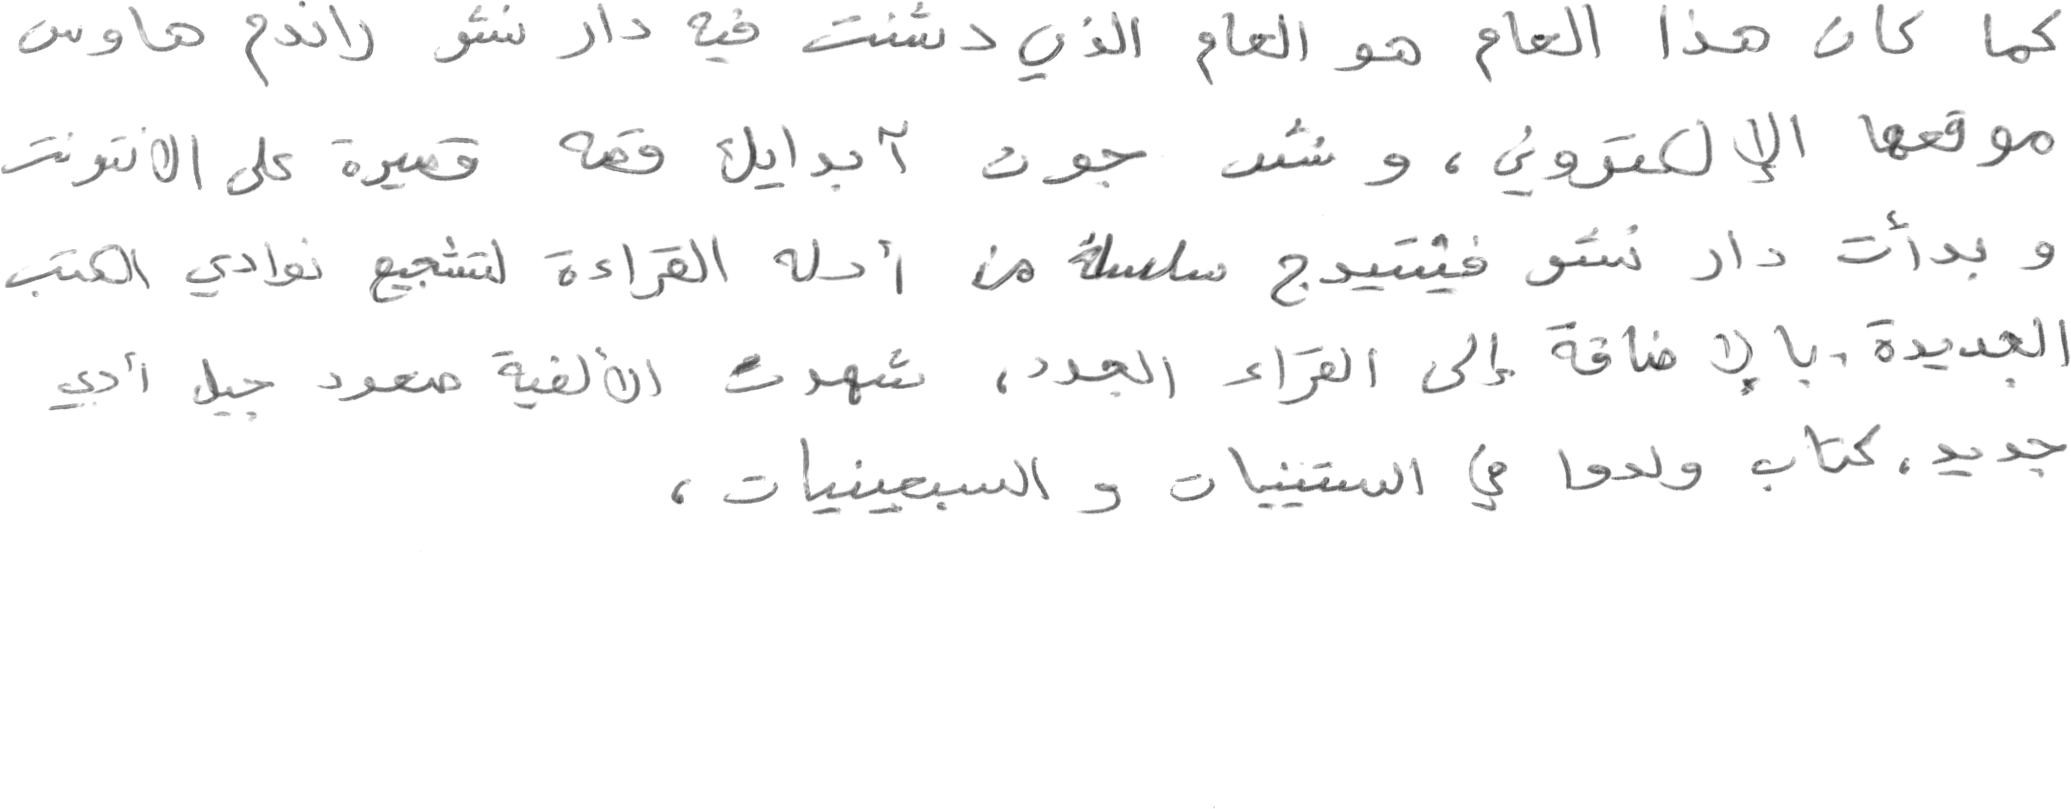 كما كان هذا العام هو العام الذي دشنت فيه دار نشر راندم هاوس
موقعها الإلكتروني، و نشر جون آبدايك قصه قصيرة على الانترنت
و بدأت دار نشر فينتيدج سلسلة من أدله القراءة لتشجيع نوادي الكتب
الجديدة. بالإضافة إلى القراء الجدد، شهدت الألفية صعود جيل أدبي
جديد. كتاب ولدوا في الستينيات و السبعينيات،